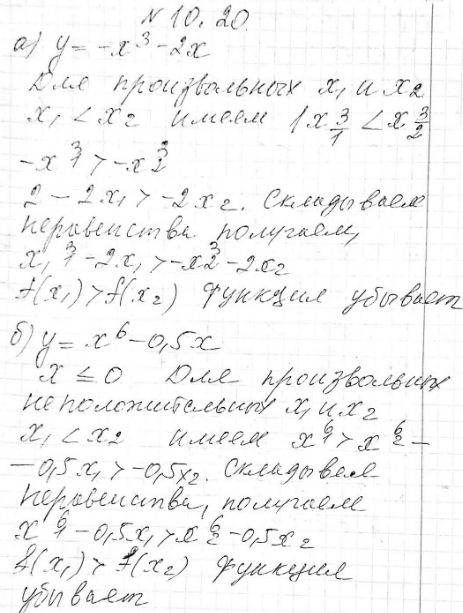 № 10.20.
а) y = -x³ - 2x
Для произвольных x₁ и x₂
x₁ < x₂ имеем 1 x₁³ < x₂³
-x₁³ > -x₂³
2 - 2x₁ > -2x₂. Складываем
неравенства получаем,
x₁³ - 2x₁ > -x₂³ - 2x₂
f(x₁) > f(x₂) функция убывает
б) y = x⁶ - 0,5x
x ≤ 0 Для произвольных
неположительных x₁ и x₂
x₁ < x₂ имеем x₁⁶ > x₂⁶ -
- 0,5x₁ > -0,5x₂. Складывем
неравенства, получаем
x₁⁶ - 0,5x₁ > x₂⁶ - 0,5x₂
f(x₁) > f(x₂) функция
убывает